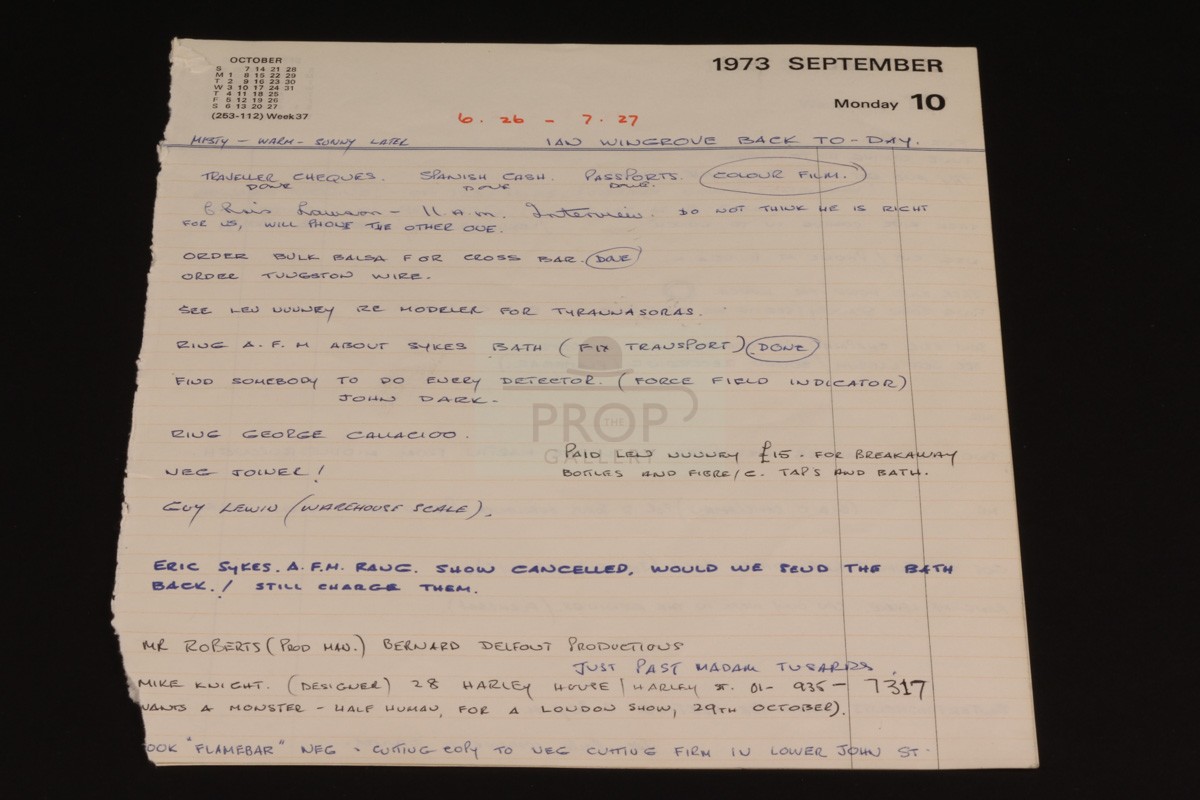 OCTOBER
S 7 14 21 28
M 1 8 15 22 29
T 2 9 16 23 30
W 3 10 17 24 31
T 4 11 18 25
F 5 12 19 26
S 6 13 20 27
(253-112) Week 37
1973 SEPTEMBER
Monday 10
6.26 - 7.27
MISTY - WARM - SUNNY LATER IAN WINGROVE BACK TO-DAY.
TRAVELLER CHEQUES. SPANISH CASH. PASSPORTS. COLOUR FILM.
DONE DONE DONE.
Chris Lawson - 11.a.m. Interview. DO NOT THINK HE IS RIGHT
FOR US, WILL PHONE THE OTHER ONE.
ORDER BULK BALSA FOR CROSS BAR. DONE
ORDER TUNGSTON WIRE.
SEE LEN NUNNEY RE MODELER FOR TYRANNASORAS.
RING A.F.M ABOUT SYKES BATH (FIX TRANSPORT) DONE
FIND SOMEBODY TO DO ENERY DETECTOR. (FORCE FIELD INDICATOR)
JOHN DARK.
THE PROP GALLERY
RING GEORGE
PAID LEN NUNNEY £15. FOR BREAKAWAY
NEG JOINER!
BOTTLES AND FIBRE/G. TAPS AND BATH.
GUY LEWIN (WAREHOUSE SCALE).
ERIC SYKES. A.F.M. RANG. SHOW CANCELLED, WOULD WE SEND THE BATH
BACK.! STILL CHARGE THEM.
MR ROBERTS (PROD MAN.) BERNARD DELFONT PRODUCTIONS
JUST PAST MADAM TUSARDS
MIKE KNIGHT. (DESIGNER) 28 HARLEY HOUSE / HARLEY ST. 01- 935- 7317
WANTS A MONSTER - HALF HUMAN, FOR A LONDON SHOW, 29TH OCTOBER).
OOK "FLAMEBAR" NEG & CUTTING COPY TO NEG CUTTING FIRM IN LOWER JOHN ST.